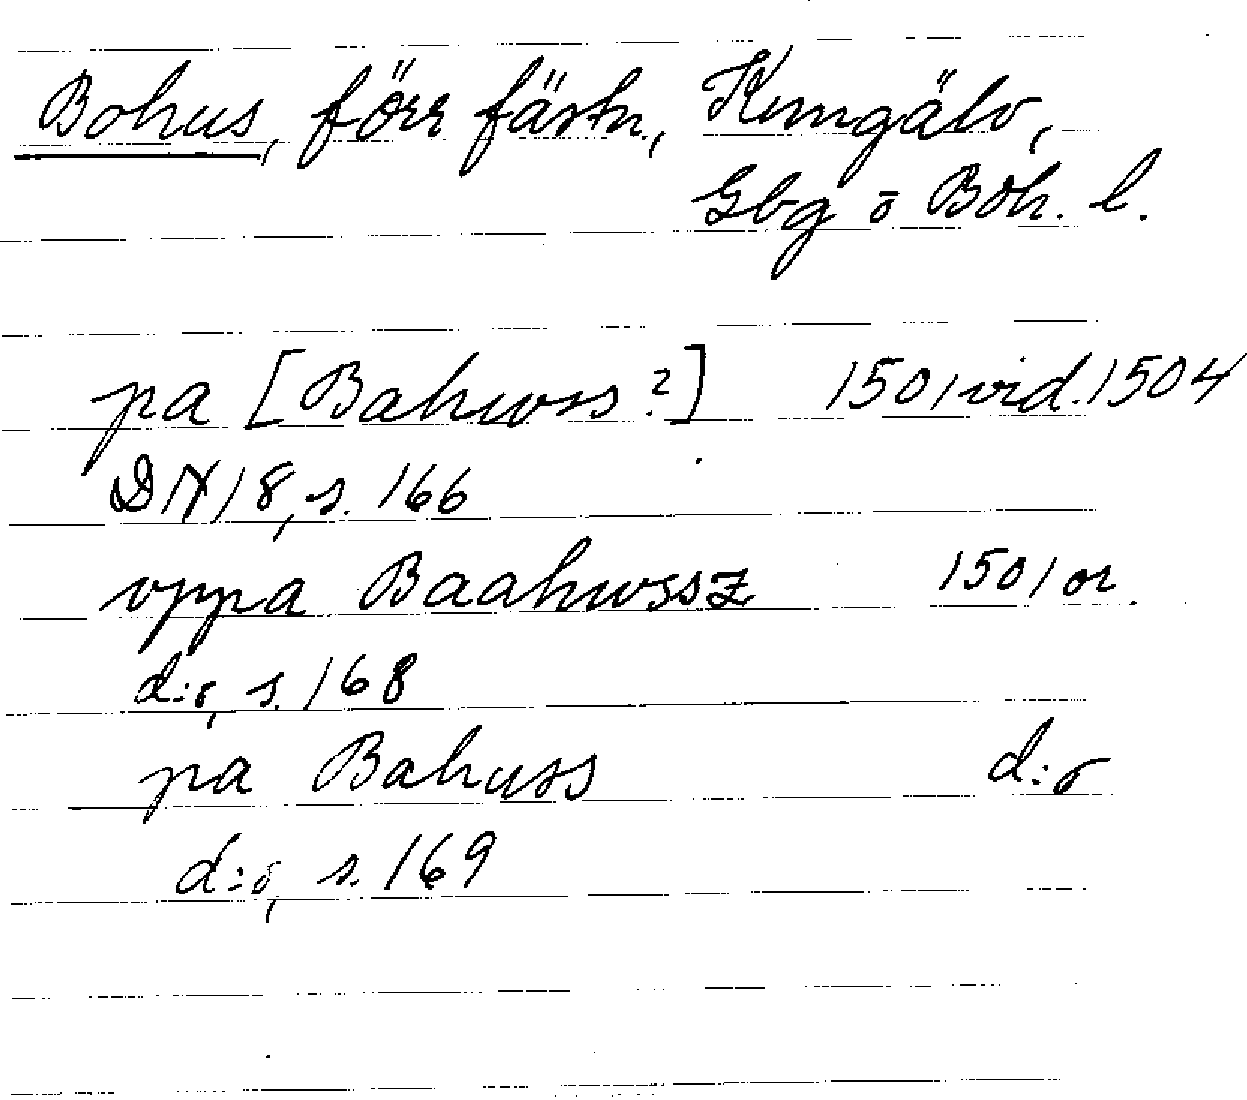 Bohus, förr fästn, Kungälv,
Gbg o Boh. l.
pa [Bahwss?] 1501 vid. 1504
DN 18, s. 166
vppa Baahwssz 1501 or.
d:o, s. 168
pa Bahuss d:o
d:o, s. 169